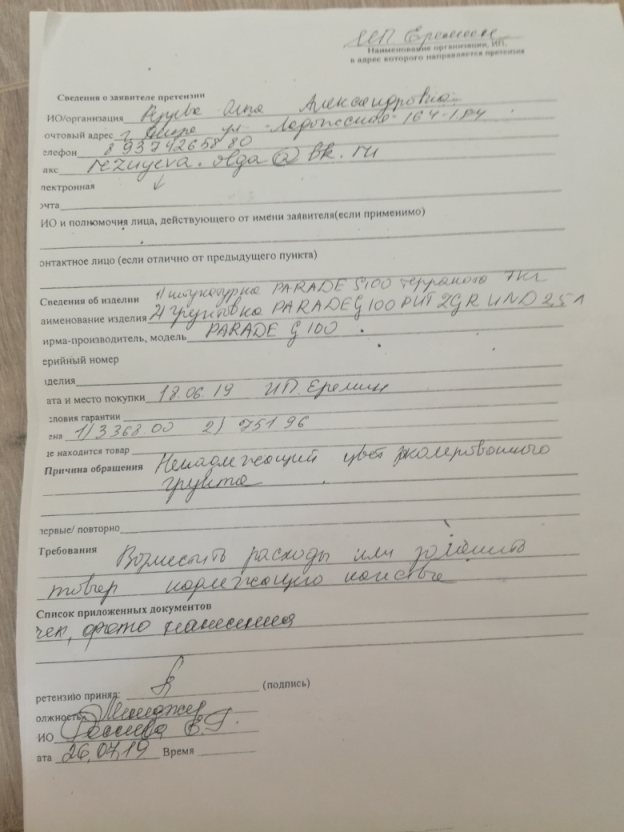 ИП Еремин
Наименование организации, ИП,
в адрес которого направляется претензия
Сведения о заявителе претензии
ИО/организация Александровна
очтовый адрес г. ул. Ладожская 164-184
елефон 89374265880
акс rezuyeva.olga@bk.ru
лектронная
очта
ИО и полномочия лица, действующего от имени заявителя(если применимо)
онтактное лицо (если отлично от предыдущего пункта)
Сведения об изделии 1) штукатурка PARADE S100 терракота 7кг
аименование изделия 2) грунтовка PARADE G100 PUTZGRUND 2,5 л
ирма-производитель, модель PARADE G100
ерийный номер
зделия
ата и место покупки 18.06.19 ИП. Еремин
словия гарантии
ена 1) 3368.00 2) 751 96
де находится товар
Причина обращения Ненадлежащий цвет колерованного
грунта
первые/ повторно
Требования Возместить расходы или заменить
товар надлежащего качества
Список приложенных документов
чек, фото нанесения
ретензию принял: (подпись)
олжность Менеджер
ИО Е.Г.
ата 26.07.19 Время